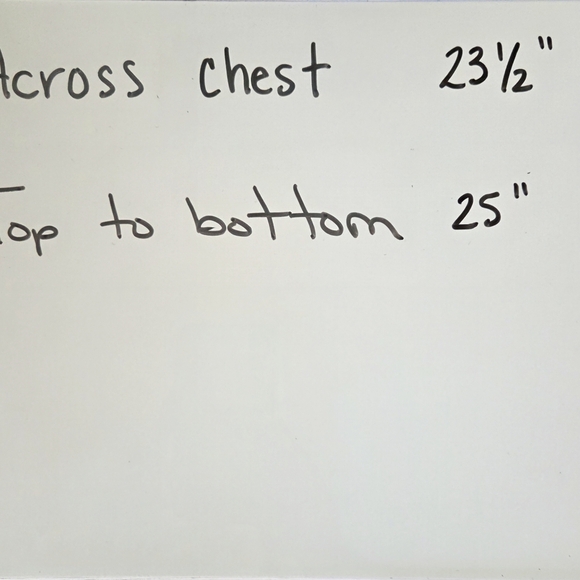 Across chest 23½"
Top to bottom 25"